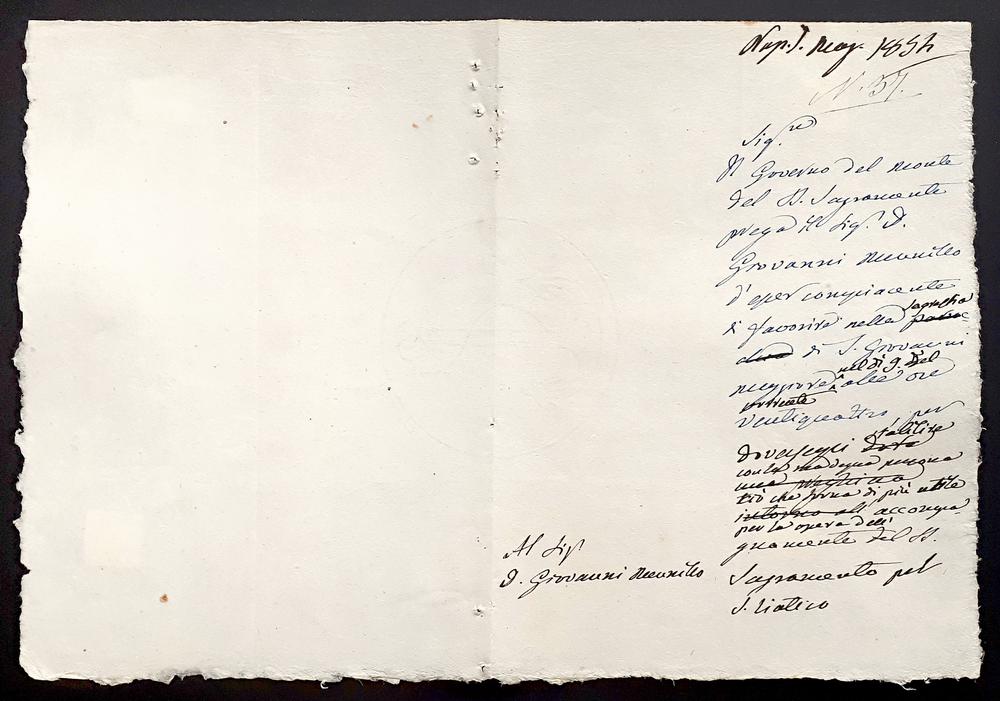 Nap. 7. Mag. 1854
N. 37.
Sig.re
Il Governo del Monte
del SS. Sagramente
prega il Sig.r D.
Giovanni Menillo
d'esser compiacente
di favorire nella sagrestia
di S. Giovanni
maggiore nel dì 9. del
corrente alle ore
ventiquattro per
doversegli stabilire
con la sua degna persona
ciò che serva di più utile
per la opera dell'
accompa
gnamento del SS.
Sagramento pel
S. Viatico
Al Sig.r
D. Giovanni Menillo